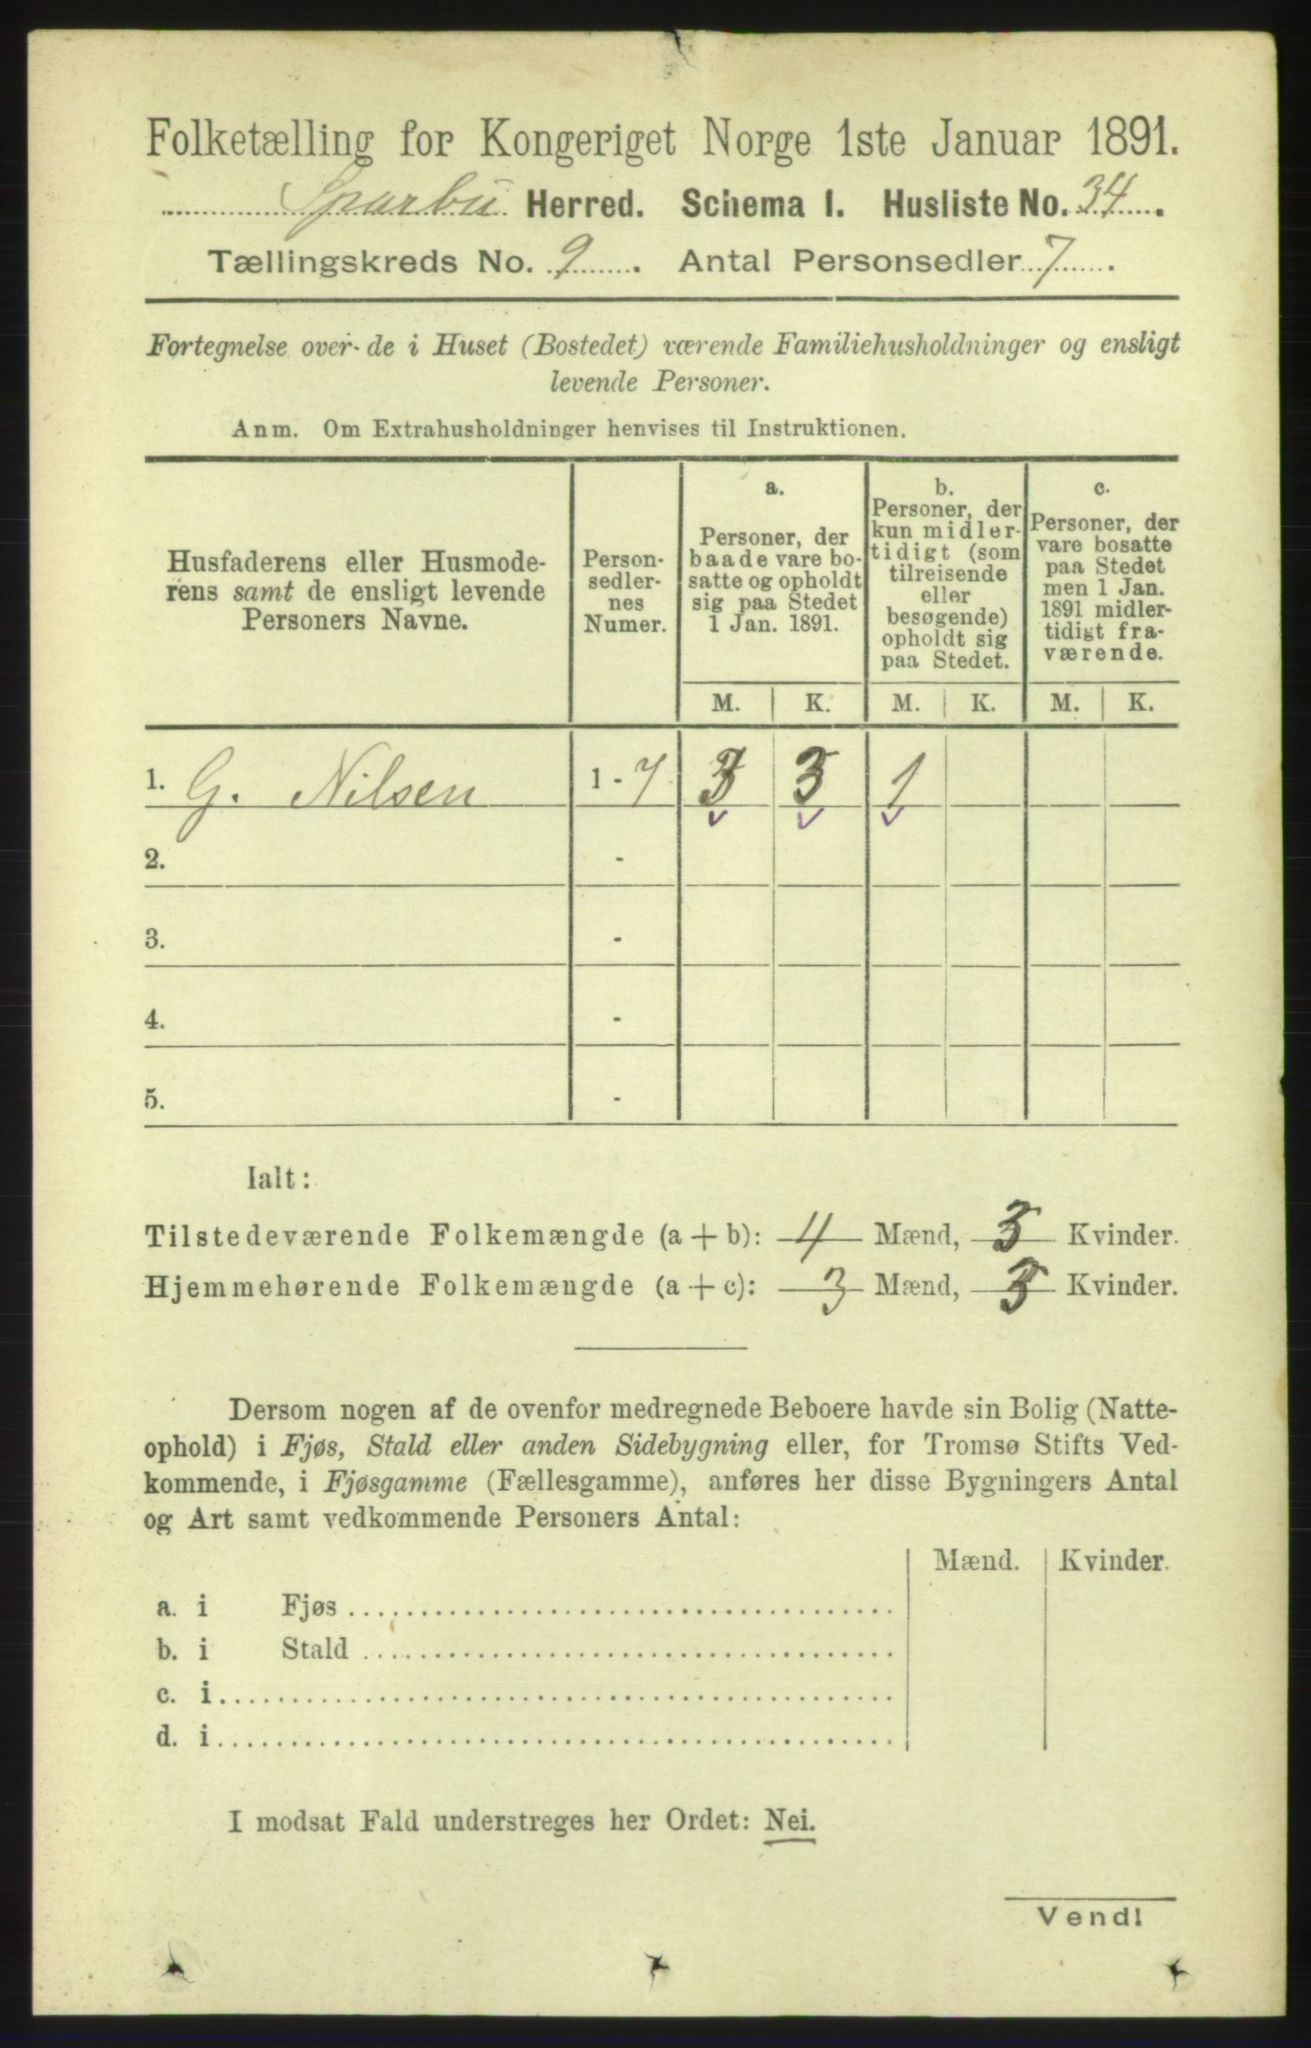 Folketælling for Kongeriget Norge 1ste Januar 1891.
Sparbu Herred. Schema 1. Husliste No. 34.
Tællingskreds No. 9. Antal Personsedler 7.
Fortegnelse over de i Huset (Bostedet) værende Familiehusholdninger og ensligt
levende Personer.
Anm. Om Extrahusholdninger henvises til Instruktionen.
Husfaderens eller Husmode-
rens samt de ensligt levende
Personers Navne.
Person-
sedler-
nes
Numer.
a.
Personer, der
baade vare bo-
satte og opholdt
sig paa Stedet
1 Jan. 1891.
b.
Personer, der
kun midler-
tidigt (som
tilreisende
eller
besøgende)
opholdt sig
paa Stedet.
c.
Personer, der
vare bosatte
paa Stedet
men 1 Jan.
1891 midler-
tidigt fra-
værende.
M. K. M. K. M. K.
1. G. Nilsen 1 - 7 3 3 1
2. -
3. -
4. -
5. -
Ialt:
Tilstedeværende Folkemængde (a + b): 4 Mænd, 3 Kvinder.
Hjemmehørende Folkemængde (a + c): 3 Mænd, 3 Kvinder.
Dersom nogen af de ovenfor medregnede Beboere havde sin Bolig (Natte-
ophold) i Fjøs, Stald eller anden Sidebygning eller, for Tromsø Stifts Ved-
kommende, i Fjøsgamme (Fællesgamme), anføres her disse Bygningers Antal
og Art samt vedkommende Personers Antal:
Mænd. Kvinder.
a. i Fjøs
b. i Stald
c. i
d. i
I modsat Fald understreges her Ordet: Nei.
Vend!